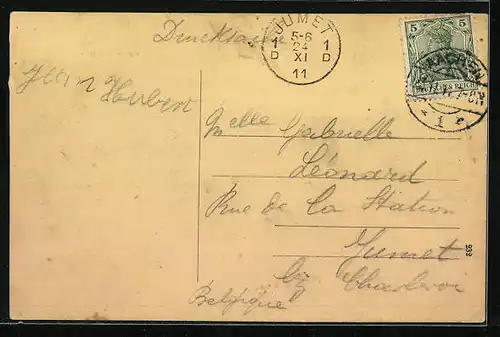 Drucksache
JUMET
1 D
5-6
24
XI
11
1 D
5 5
DEUTSCHES REICH
AACHEN
1 c
Jean Hubert
Melle Gabrielle
Léonard
Rue de la Station
Jumet
by Charleroi
Belgique
939